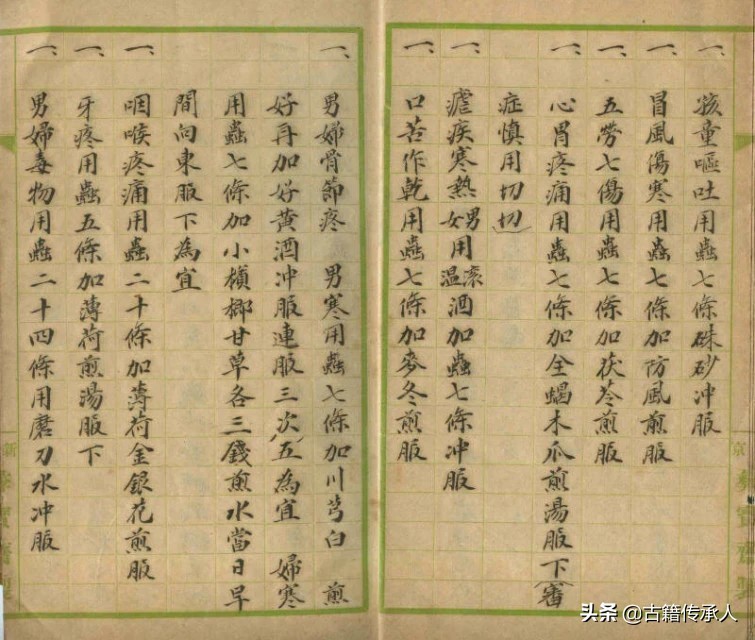 一、孩童嘔吐用蟲七條硃砂冲服
一、冒風傷寒用蟲七條加防風煎服
一、五勞七傷用蟲七條加茯苓煎服
一、心胃疼痛用蟲七條加全蝎木瓜煎湯服下審
症慎用切切
一、瘧疾寒熱男用滾女用温酒加蟲七條冲服
一、口苦作乾用蟲七條加麥冬煎服
一、男婦骨節疼 男寒用蟲七條加川芎白 煎
好再加好黄酒冲服連服三次五為宜 婦寒
用蟲七條加小檳榔甘草各三錢煎水當日早
間向東服下為宜
一、咽喉疼痛用蟲二十條加薄荷金銀花煎服
一、牙疼用蟲五條加薄荷煎湯服下
一、男婦毒物用蟲二十四條用磨刀水冲服
头条 @古籍传承人